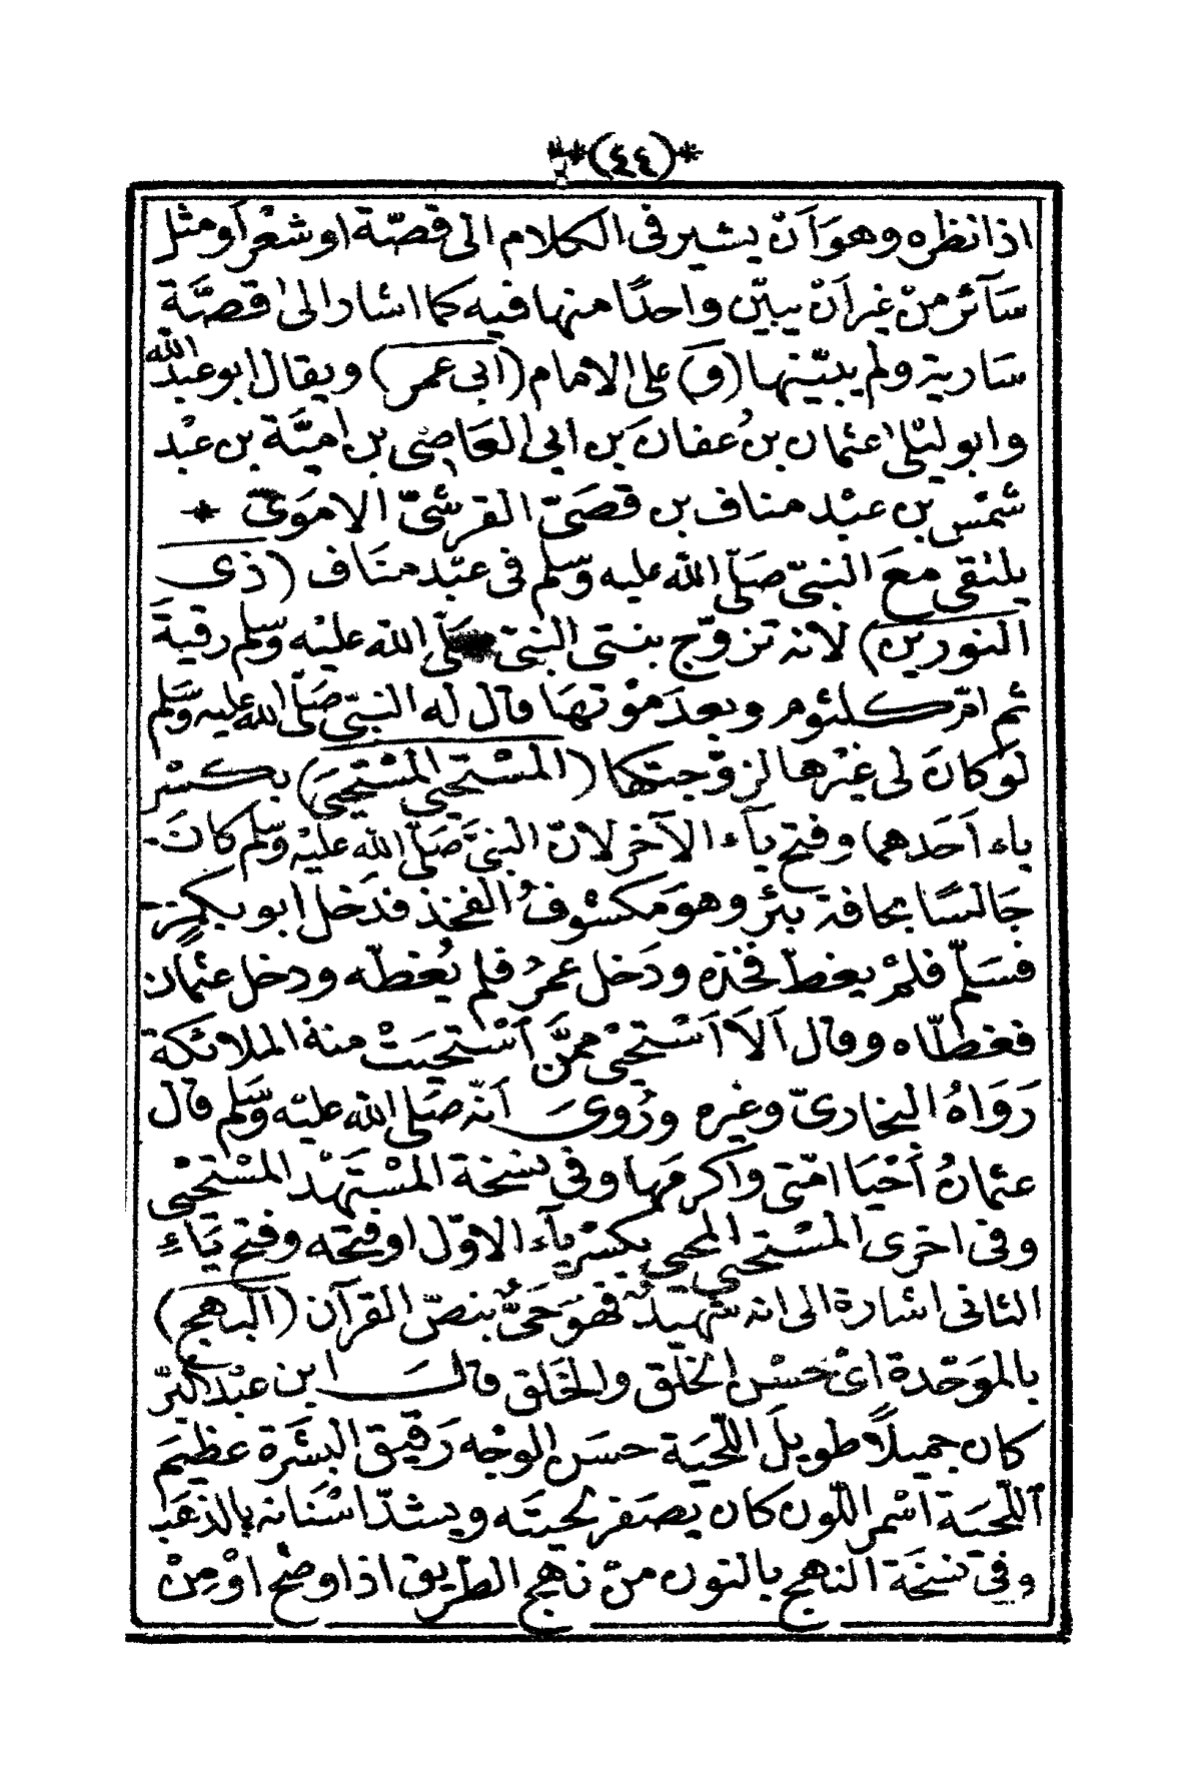 *(٤٤)**
اذا نظره وهوَ اَنْ يشير فى الكلام الى قصّة او شعْر اَو مثل
سَآئر منْ غير اَنْ يبيّن واحدًا منها فيه كما اشار الى قصَّة
سَارية ولم يبيّنها (وَ) على الامام (ابى عمر) ويقال ابو عبْد الله
وابو ليْلى عثمان بنُ عفانَ بن ابى العَاصِى بن اميَّة بن عبْد
شمْس بن عبْد مناف بن قصَىّ القرشىّ الامَوىّ *
يلتقى معَ النبىّ صَلّى الله عليه وَسلم فى عبْد منَاف (ذى
النورين) لانه تزوّج بنتى النبىّ صَلّى الله عليْه وَسلم رقيةَ
ثم امّ كلثوم وبعدَ موْتهَا قال له النبىّ صَلّى الله عليه وسَلم
لوْ كانَ لى غيْرها لزوّجتكها (المسْتحيى المسْتحيَى) بكسْر
ياء اَحَدهما وفتح يآء الآخر لانّ النبىَّ صَلّى الله عليْه وَسلم كانَ
جَالسًا بحافة بئر وهوَ مَكشوفُ الفخذ فدَخل ابو بكر
فسَلّم فلمْ يغطّ فخذه ودَخل عمرُ فلم يُغطّه ودخل عثمان
فغطّاه وقال اَلاَ اَسْتحيى ممَّن اَسْتحيَتْ منهُ الملائكة
رَوَاهُ البخارىّ وغيره ورُوىَ اَنّه صَلى الله عليْه وَسَلم قال
عثمانُ اَحْيَا امّتى وَاكرمَها وفى نسْخة المسْتَهْد المسْتحيى
وفى اخرَى المسْتحيى المحيى بكسْر يآء الاوّل او فتحه وفتح يَاءِ
الثانى اشارة الى انه شهيْدٌ فهوَ حَىٌّ بنصّ القرآن (البهج)
بالموَحّدة اىْ حَسْن الخَلْق والخلق قالَ ابن عبْد البرّ
كان جميلًا طويلَ اللّحيَة حسَن الوجْه رَقيق البشَرة عظيمَ
اللّحيَة اسْمر اللّون كان يصَفر لحيتَه ويشدّ اسْنَانه بالذهَب
وفى نسْخَة النهج بالنون منْ نهج الطّريق اذا وضحَ اوْ مِنْ